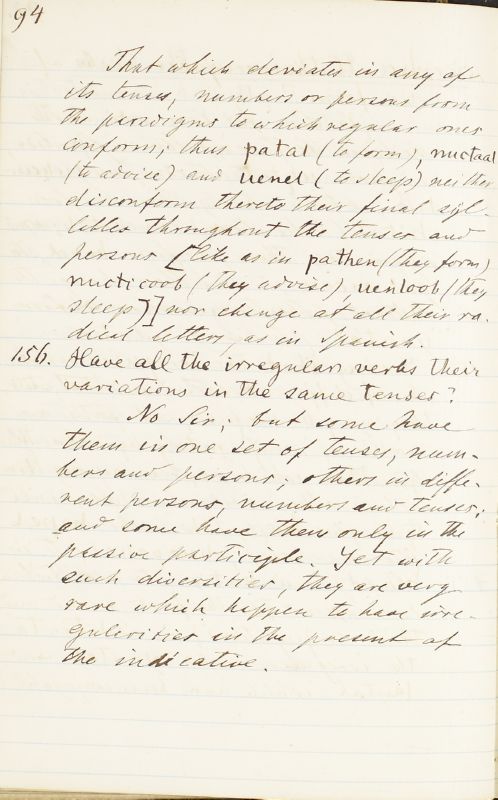 94
That which deviates in any of
its tenses, numbers or persons from
the paradigms to which regular ones
conform; thus patal (to form), nuctaal
(to advise) and uenel (to sleep) neither
disconform thereto their final syl-
lables throughout the tenses and
persons [like as in pathen (they form)
nucticoob (they advise), uenloob (they
sleep)] nor change at all their ra-
dical letters, as in Spanish.
156. Have all the irregular verbs their
variations in the same tenses?
No Sir; but some have
them in one set of tenses, num-
bers and persons; others in diffe-
rent persons, numbers and tenses;
and some have them only in the
passive participle. Yet with
such diversities, they are very
rare which happen to have irre-
gularities in the present of
the indicative.